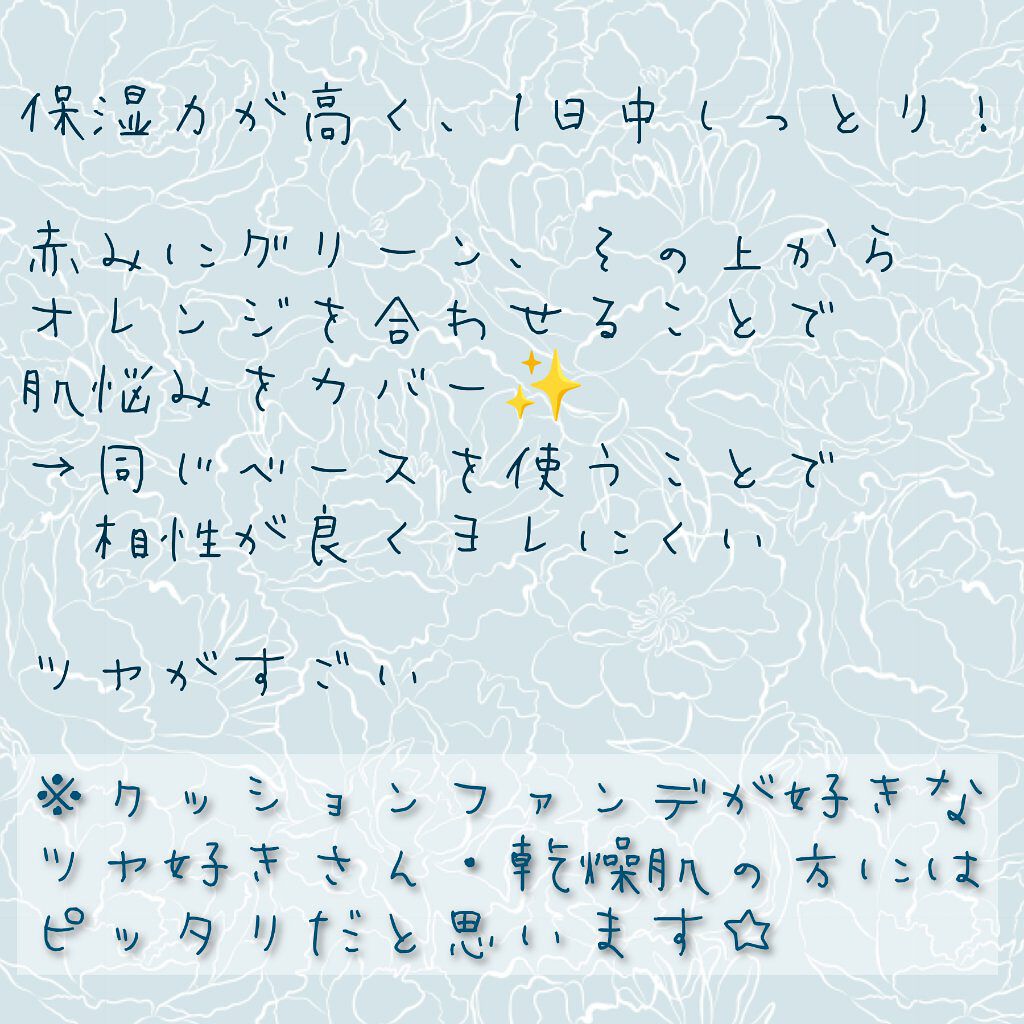 保湿力が高く、1日中しっとり！
赤みにグリーン、その上から
オレンジを合わせることで
肌悩みをカバー✨
→同じベースを使うことで
相性が良くヨレにくい
ツヤがすごい
※クッションファンデが好きな
ツヤ好きさん・乾燥肌の方には
ピッタリだと思います☆